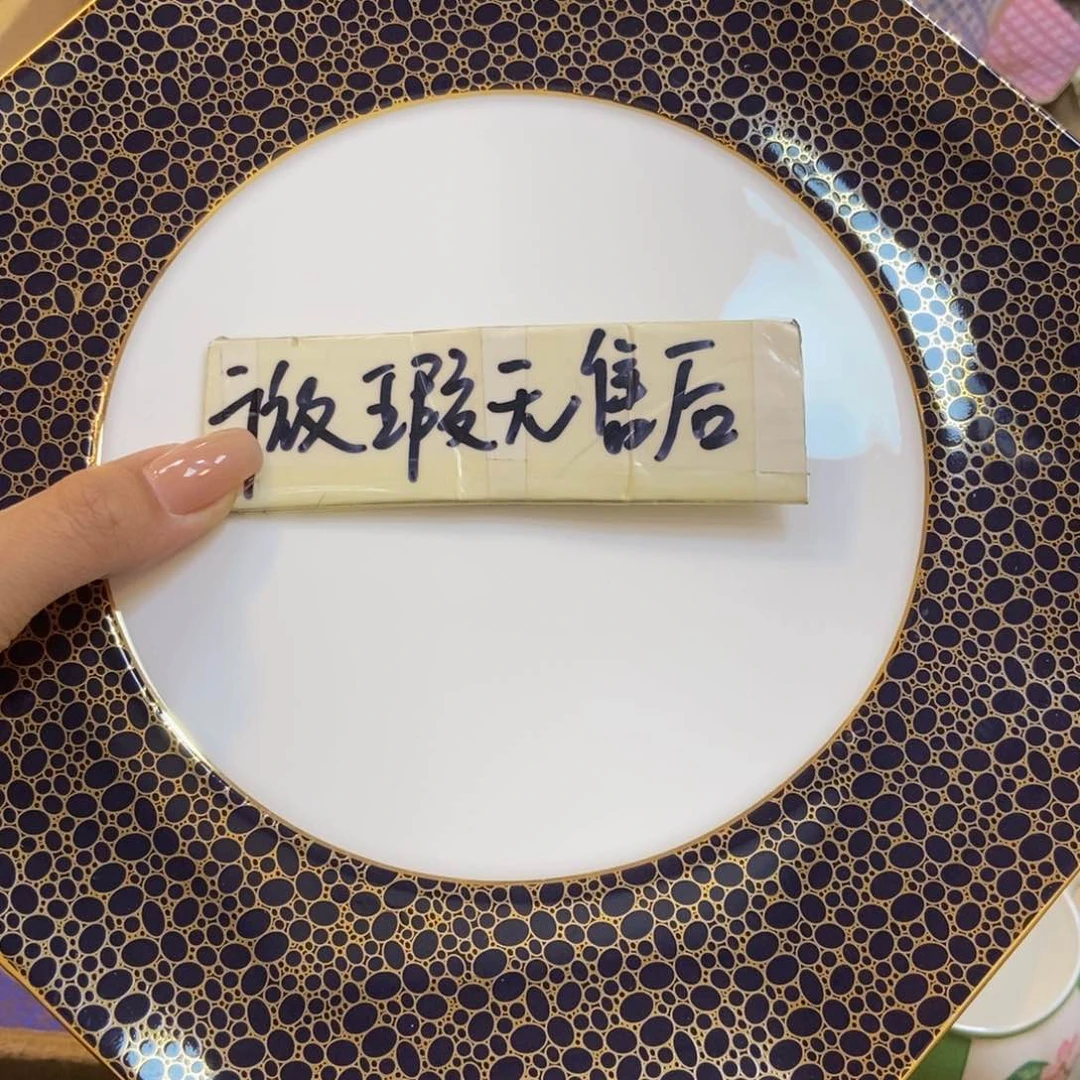 微瑕无售后